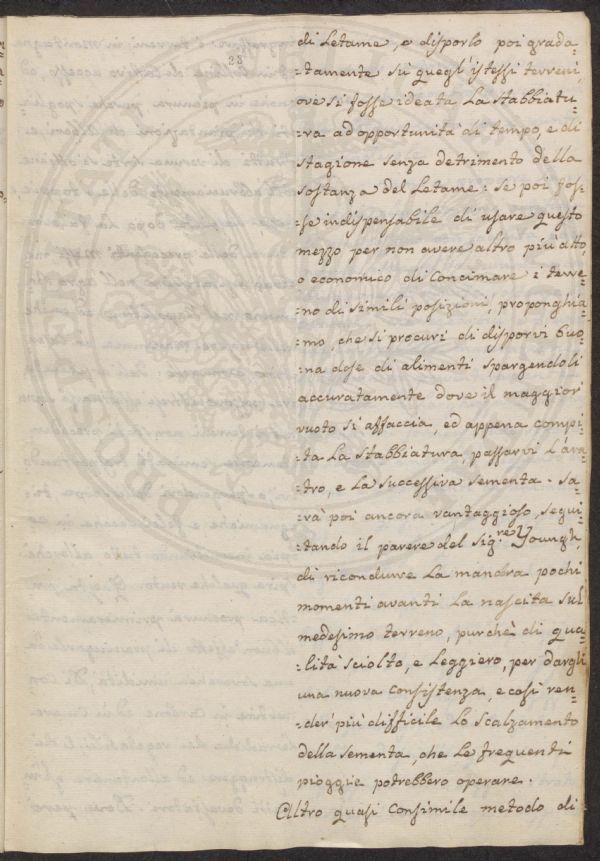 23
di Letame, e disporlo poi grada=
=tamente sù quegl'istessi terreni,
ove si fosse ideata la stabbiatu=
=ra ad opportunità di tempo, e di
stagione senza detrimento della
sostanza del Letame: se poi fos=
=se indispensabile di usare questo
mezzo per non avere altro più atto,
o economico di Concimare i terre=
=no di simili posizioni, proponghia=
=mo, che si procuri di disporvi buo=
=na dose di alimenti spargendoli
accuratamente dove il maggior
vuoto si affaccia, ed appena compi=
=ta la stabbiatura, passarvi l'ara=
=tro, e la successiva sementa. Sa=
=rà poi ancora vantaggioso, segui=
=tando il parere del Sig.re Youngh,
di ricondurre la mandra pochi
momenti avanti la nascita sul
medesimo terreno, purchè di qua=
=lità sciolto, e leggiero, per dargli
una nuova Consistenza, e così ren=
=der più difficile lo scalzamento
della sementa, che le frequenti
pioggie potrebbero operare.
Altro quasi Consimile metodo di